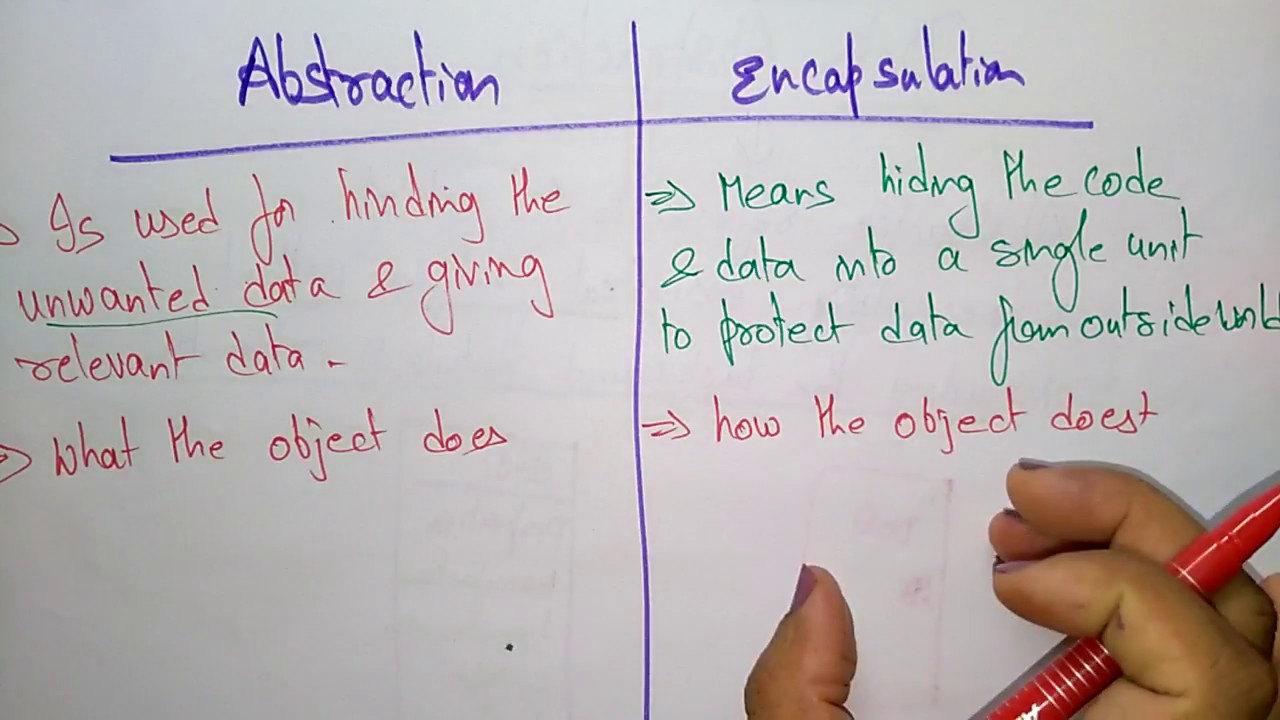 Abstraction
Encapsulation
Is used for hinding the
unwanted data & giving
relevant data.
⇒ What the object does
⇒ Means hiding the code
& data into a single unit
to protect data from outside
⇒ how the object does